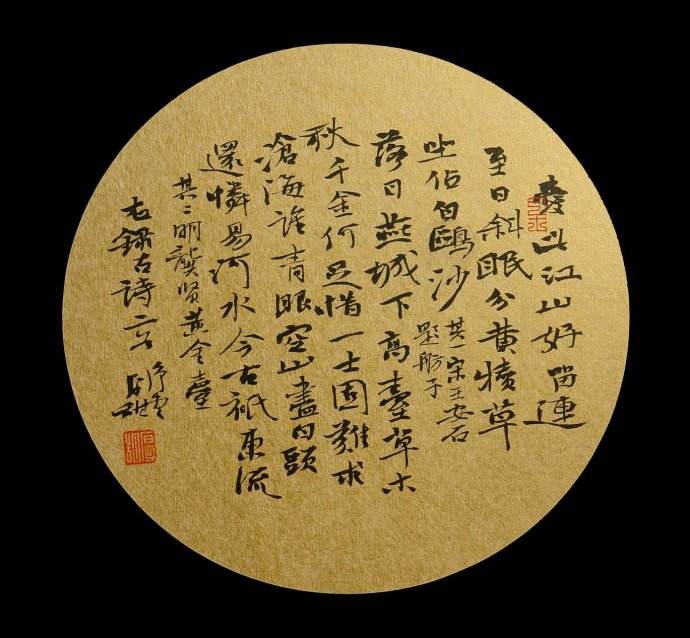 愛此江山好留連
至日斜眠分黄犢草
坐佔白鷗沙
其一宋王安石
題舫子
落日燕城下高臺草木
秋千金何足惜一士固難求
滄海誰青眼空山盡白頭
還憐易河水今古祇東流
其二明龔賢黄金臺
右錄古詩二首